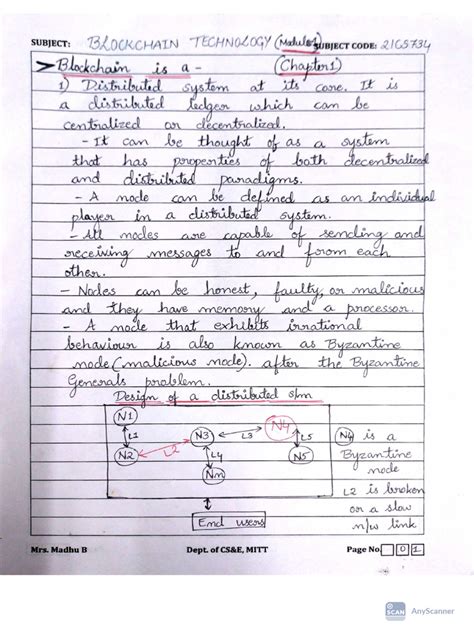 SUBJECT: BLOCKCHAIN TECHNOLOGY (Module1) SUBJECT CODE: 21CS734
Blockchain is a - (Chapter1)
1) Distributed system at its core. It is
a distributed ledger which can be
centralized or decentralized.
- It can be thought of as a system
that has properties of both decentralized
and distributed paradigms.
- A node can be defined as an individual
player in a distributed system.
- All nodes are capable of sending and
receiving messages to and from each
other.
- Nodes can be honest, faulty, or malicious
and they have memory and a processor.
- A node that exhibits irrational
behaviour is also known as Byzantine
node (malicious node). after the Byzantine
Generals problem.
Design of a distributed s/m
N1
N4
L1
N3
L3
L5
N4 is a
N2
L2
L4
N5
Byzantine
Nn
node
L2 is broken
or a slow
End users
n/w link
Mrs. Madhu B Dept. of CS&E, MITT Page No. 0 1
SCAN AnyScanner